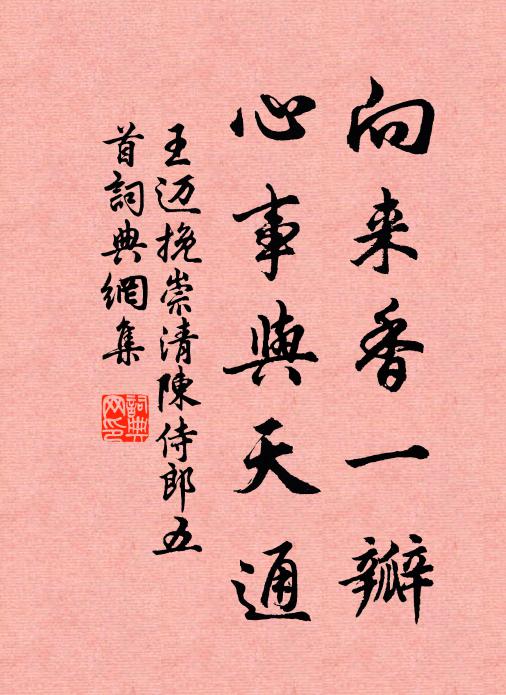 向来香一瓣
心事與天通
王迈挽崇清陳侍郎五
首詞典網集
詞典
网印